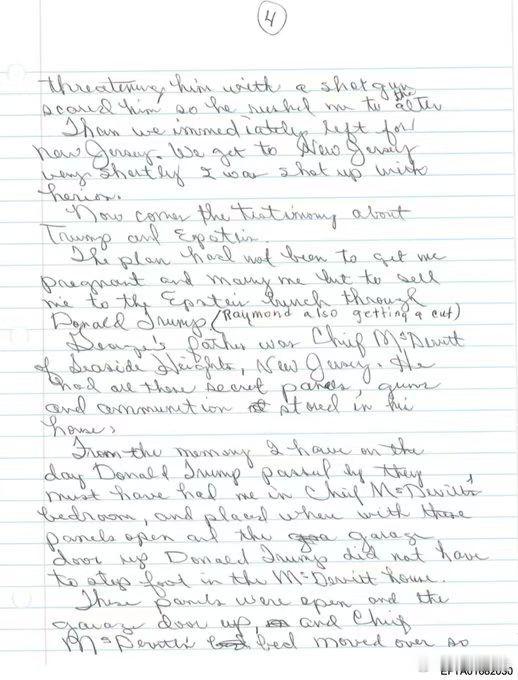 4
threatening him with a shotgun
scared him so he rushed me to the alter
Than we immediately left for
New Jersey. We get to New Jersey
very shortly I was shot up with
herion.
Now comes the testimony about
Trump and Epstein.
The plan had not been to get me
pregnant and marry me but to sell
me to the Epstein bunch through
Donald Trump. (Raymond also getting a cut)
George's father was Chief McDevitt
of Seaside Heights, New Jersey. He
had all these secret panels, guns
and ammunition stored in his
house.
From the memory I have on the
day Donald Trump passed by they
must have had me in Chief McDevitt's
bedroom, and placed where with those
panels open and the garage
door up Donald Trump did not have
to step foot in the McDevitt house.
These panels were open and the
garage door up, and Chief
McDevitt's bed moved over so
EFTA01682050